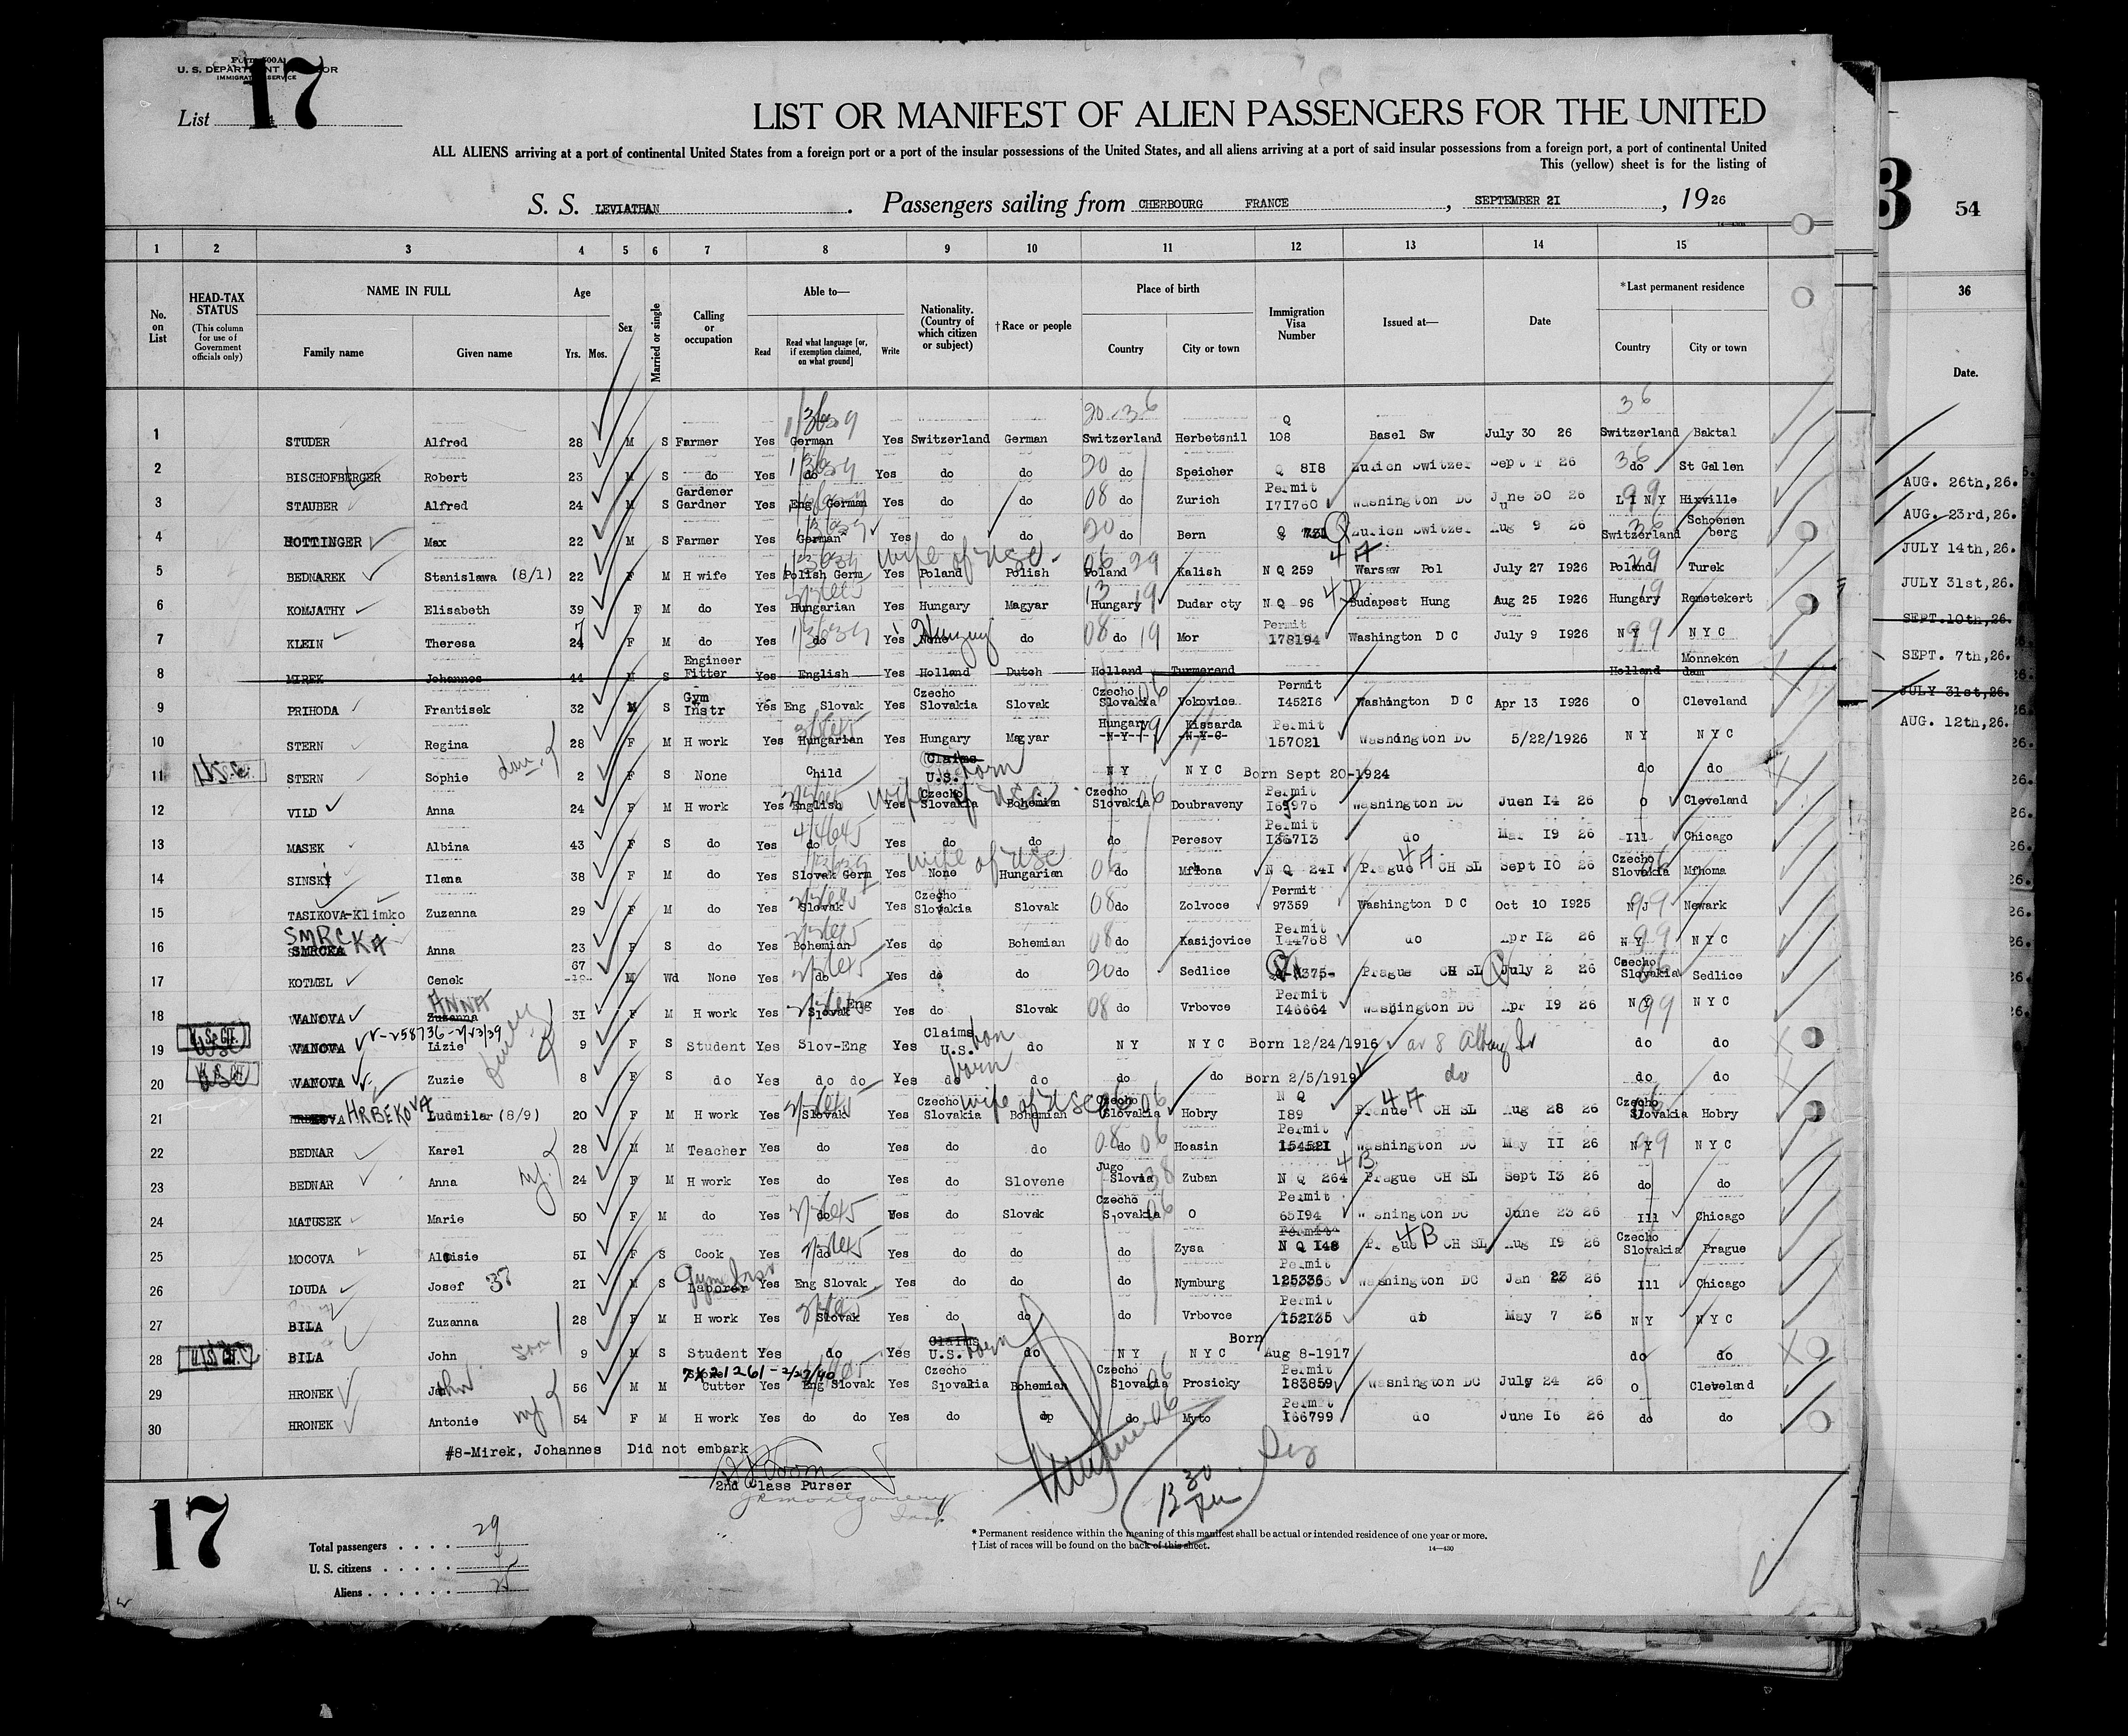 Form 500A
U. S. DEPARTMENT OF LABOR
IMMIGRATION SERVICE
List 17
LIST OR MANIFEST OF ALIEN PASSENGERS FOR THE UNITED
ALL ALIENS arriving at a port of continental United States from a foreign port or a port of the insular possessions of the United States, and all aliens arriving at a port of said insular possessions from a foreign port, a port of continental United
This (yellow) sheet is for the listing of
S. S. LEVIATHAN. Passengers sailing from CHERBOURG FRANCE, SEPTEMBER 21, 1926
1 2 3 4 5 6 7 8 9 10 11 12 13 14 15
No. on List
HEAD-TAX STATUS (This column for use of Government officials only)
NAME IN FULL Family name Given name
Age Yrs. Mos.
Sex
Married or single
Calling or occupation
Able to— Read Read what language [or, if exemption claimed, on what ground] Write
Nationality. (Country of which citizen or subject)
†Race or people
Place of birth Country City or town
Immigration Visa Number
Issued at—
Date
*Last permanent residence Country City or town
20-36 36
1 STUDER Alfred 28 M S Farmer Yes German Yes Switzerland German Switzerland Herbetsnil Q 108 Basel Sw July 30 26 Switzerland Baktal
2 BISCHOFBERGER Robert 23 M S do Yes do Yes do do 20 do Speicher Q 818 Zurich Switzer Sept 1 26 36 do St Gallen
3 STAUBER Alfred 24 M S Gardener Gardner Yes Eng German Yes do do 08 do Zurich Permit 171760 Washington DC June 30 26 L I N Y 99 Hixville
4 HOTTINGER Max 22 M S Farmer Yes German Yes do do 20 do Bern Q 721 Zurich Switzer Aug 9 26 Switzerland 36 Schoenenberg
5 BEDNAREK Stanislawa (8/1) 22 F M H wife Yes Polish Germ Yes Poland Polish wife of USC 06 29 Poland Kalish N Q 259 4A Warsaw Pol July 27 1926 Poland 29 Turek
6 KOMJATHY Elisabeth 39 F M do Yes Hungarian Yes Hungary Magyar 13 19 Hungary Dudar cty N Q 96 Budapest Hung Aug 25 1926 Hungary 19 Remetekert
7 KLEIN Theresa 24 F M do Yes do Yes None Hungary do 08 do 19 Mor Permit 178194 Washington D C July 9 1926 N Y 99 N Y C
8 MIREK Johannes 44 M S Engineer Fitter Yes English Yes Holland Dutch Holland Turmerend Holland Monnekendam
9 PRIHODA Frantisek 32 M S Gym Instr Yes Eng Slovak Yes Czecho Slovakia Slovak Czecho Slovakia 06 Vokovice Permit 145216 Washington D C Apr 13 1926 O Cleveland
10 STERN Regina 28 F M H work Yes Hungarian Yes Hungary Magyar Hungary -N-Y- 19 Kissarda -N-Y-C- Permit 157021 Washington DC 5/22/1926 N Y N Y C
11 STERN Sophie dau. 2 F S None Child Claims U.S. born N Y N Y C Born Sept 20-1924 do do
12 VILD Anna 24 F M H work Yes English Yes Czecho Slovakia Bohemian wife of USC Czecho Slovakia 06 Doubraveny Permit 165976 Washington DC Juen 14 26 O Cleveland
13 MASEK Albina 43 F S do Yes do Yes do do do Peresov Permit 136713 do Mar 19 26 Ill Chicago
14 SINSKY Ilana 38 F M do Yes Slovak Germ Yes None Hungarian wife of USC 06 do N Q 241 4A Prague CH SL Sept 10 26 Czecho Slovakia 06 Mfhoma
15 TASIKOVA-Klimko Zuzanna 29 F M do Yes Slovak Yes Czecho Slovakia Slovak 08 do Zolvoce Permit 97359 Washington D C Oct 10 1925 N J 99 Newark
16 SMRCKA SMRCKA Anna 23 F S do Yes Bohemian Yes do Bohemian 08 do Kasijovice Permit 144768 do Apr 12 26 N Y 99 N Y C
17 KOTMEL Cenek 67 M Wd None Yes do Yes do do 20 do Sedlice Prague CH SL July 2 26 Czecho Slovakia 06 Sedlice
18 VANOVA ANNA Zuzanna 31 F M H work Yes Slovak Eng Yes do Slovak 08 do Vrbovce Permit 146664 Washington DC Apr 19 26 N Y 99 N Y C
19 VANOVA V-258736-2/23/39 Lizie 9 F S Student Yes Slov-Eng Yes Claims U.S. do N Y N Y C Born 12/24/1916 do do
20 VANOVA Zuzie 8 F S do Yes do do Yes do born do do do Born 2/5/1919 do do do
21 HRBEKOVA Ludmilar (8/9) 20 F M H work Yes Slovak Yes Czecho Slovakia Bohemian wife of USC Czecho Slovakia 06 Hobry N Q 189 4A CH SL Aug 28 26 Czecho Slovakia Hobry
22 BEDNAR Karel 28 M M Teacher Yes do Yes do do 08 do 06 Hoasin Permit 154521 Washington DC May 11 26 N Y 99 N Y C
23 BEDNAR Anna 24 F M H work Yes do Yes do Slovene Jugo Slovia 38 Zuban N Q 264 4B Prague CH SL Sept 13 26 do do
24 MATUSEK Marie 50 F M do Yes do Yes do Slovak Czecho Slovakia 06 O Permit 65194 Washington DC June 23 26 Ill Chicago
25 MOCOVA Aloisie 51 F S Cook Yes do Yes do do do Zysa Permit N Q 148 4B Prague CH SL Aug 19 26 Czecho Slovakia Prague
26 LOUDA Josef 37 21 M S Gym Instr Laborer Yes Eng Slovak Yes do do do Nymburg Permit 125336 Washington DC Jan 23 26 Ill Chicago
27 BILA Zuzanna 28 F M H work Yes Slovak Yes do do do Vrbovce Permit 152135 do May 7 26 N Y N Y C
28 BILA John son 9 M S Student Yes do Yes Claims U.S. born do N Y N Y C Born Aug 8-1917 do do
29 HRONEK John 56 M M Stone Cutter Yes Eng Slovak Yes Czecho Slovakia Bohemian Czecho Slovakia 06 Prosicky Permit 183859 Washington DC July 24 26 O Cleveland
30 HRONEK Antonie 54 F M H work Yes do do Yes do do do 06 Myto Permit 166799 do June 16 26 do do
#8-Mirek, Johannes Did not embark
2nd Class Purser
17
Total passengers . . . . 29
U. S. citizens . . . . .
Aliens . . . . . . 25
* Permanent residence within the meaning of this manifest shall be actual or intended residence of one year or more.
† List of races will be found on the back of this sheet.
14—430
3
54
36
Date.
AUG. 26th,26.
AUG. 23rd,26.
JULY 14th,26.
JULY 31st,26.
SEPT.10th,26.
SEPT. 7th,26.
JULY 31st,26.
AUG. 12th,26.